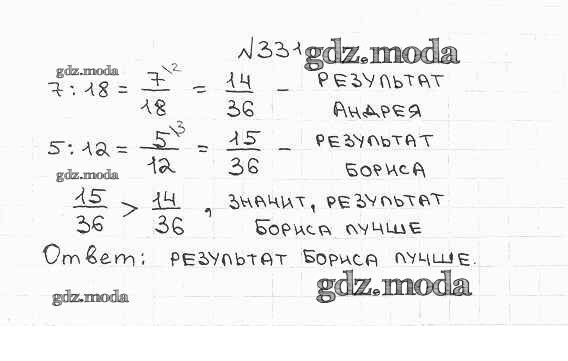 №331 gdz.moda
gdz.moda
7 : 18 = 7\2/18 = 14/36 – РЕЗУЛЬТАТ
АНДРЕЯ
5 : 12 = 5\3/12 = 15/36 – РЕЗУЛЬТАТ
БОРИСА
gdz.moda
15/36 > 14/36, ЗНАЧИТ, РЕЗУЛЬТАТ
БОРИСА ЛУЧШЕ
Ответ: РЕЗУЛЬТАТ БОРИСА ЛУЧШЕ.
gdz.moda
gdz.moda